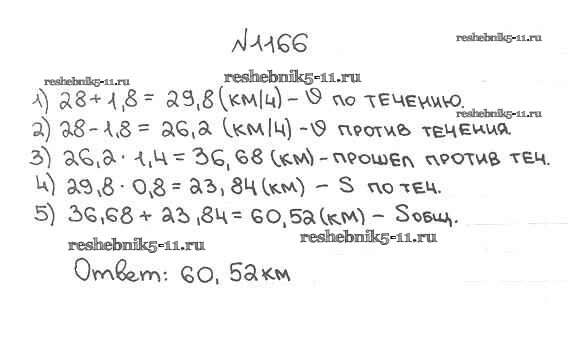 №1166
reshebnik5-11.ru
reshebnik5-11.ru
reshebnik5-11.ru
1) 28 + 1,8 = 29,8 (км/ч) - υ по течению.
reshebnik5-11.ru
2) 28 - 1,8 = 26,2 (км/ч) - υ против течения.
3) 26,2 · 1,4 = 36,68 (км) - прошел против теч.
4) 29,8 · 0,8 = 23,84 (км) - S по теч.
5) 36,68 + 23,84 = 60,52 (км) - Sобщ.
reshebnik5-11.ru
reshebnik5-11.ru
Ответ: 60,52 км